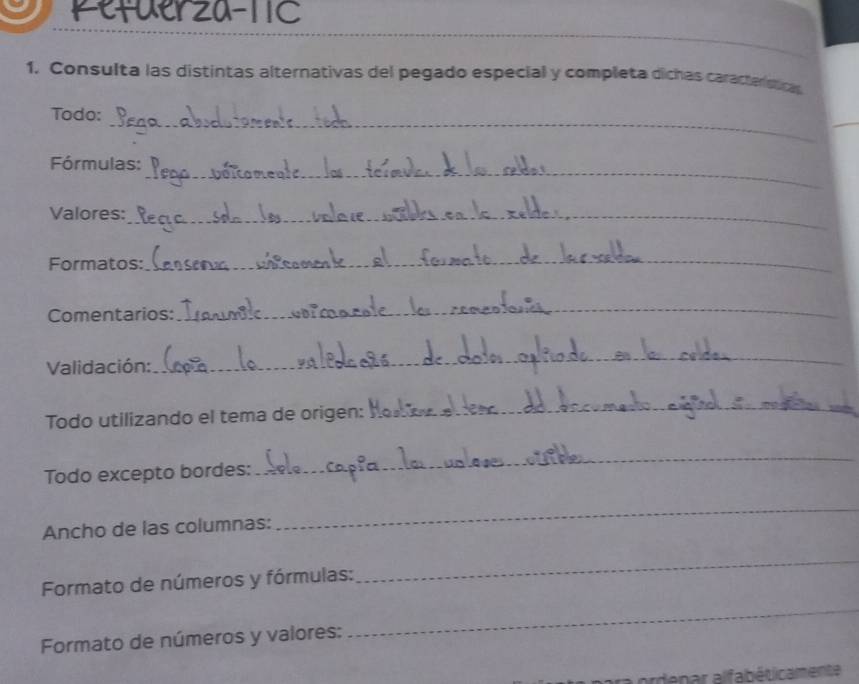 Refuerza-TIC
1. Consulta las distintas alternativas del pegado especial y completa dichas características.
Todo: Pega absolutamente todo
Fórmulas: Pega únicamente las fórmulas de las celdas
Valores: Pega solo los valores visibles en la celdas.
Formatos: Conserva únicamente el formato de las celdas
Comentarios: Transmite únicamente los comentarios
Validación: Copia la de datos aplicada en la celdas
Todo utilizando el tema de origen: Mantiene el tema del documento original
Todo excepto bordes: Solo copia los valores visibles
Ancho de las columnas:
Formato de números y fórmulas:
Formato de números y valores:
para ordenar alfabéticamente